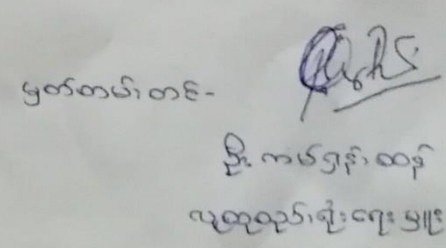 မှတ်တမ်းတင်-
ဦး ကမ်ရှန်းထန်
လူထုစည်းရုံးရေးမှူး